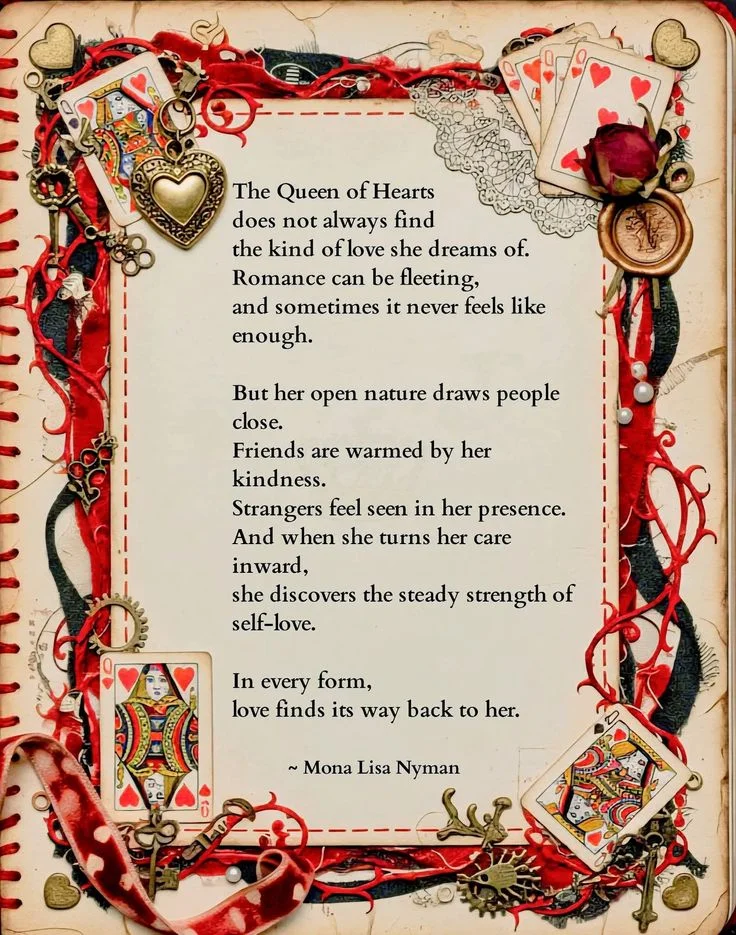 The Queen of Hearts
does not always find
the kind of love she dreams of.
Romance can be fleeting,
and sometimes it never feels like
enough.
But her open nature draws people
close.
Friends are warmed by her
kindness.
Strangers feel seen in her presence.
And when she turns her care
inward,
she discovers the steady strength of
self-love.
In every form,
love finds its way back to her.
~ Mona Lisa Nyman